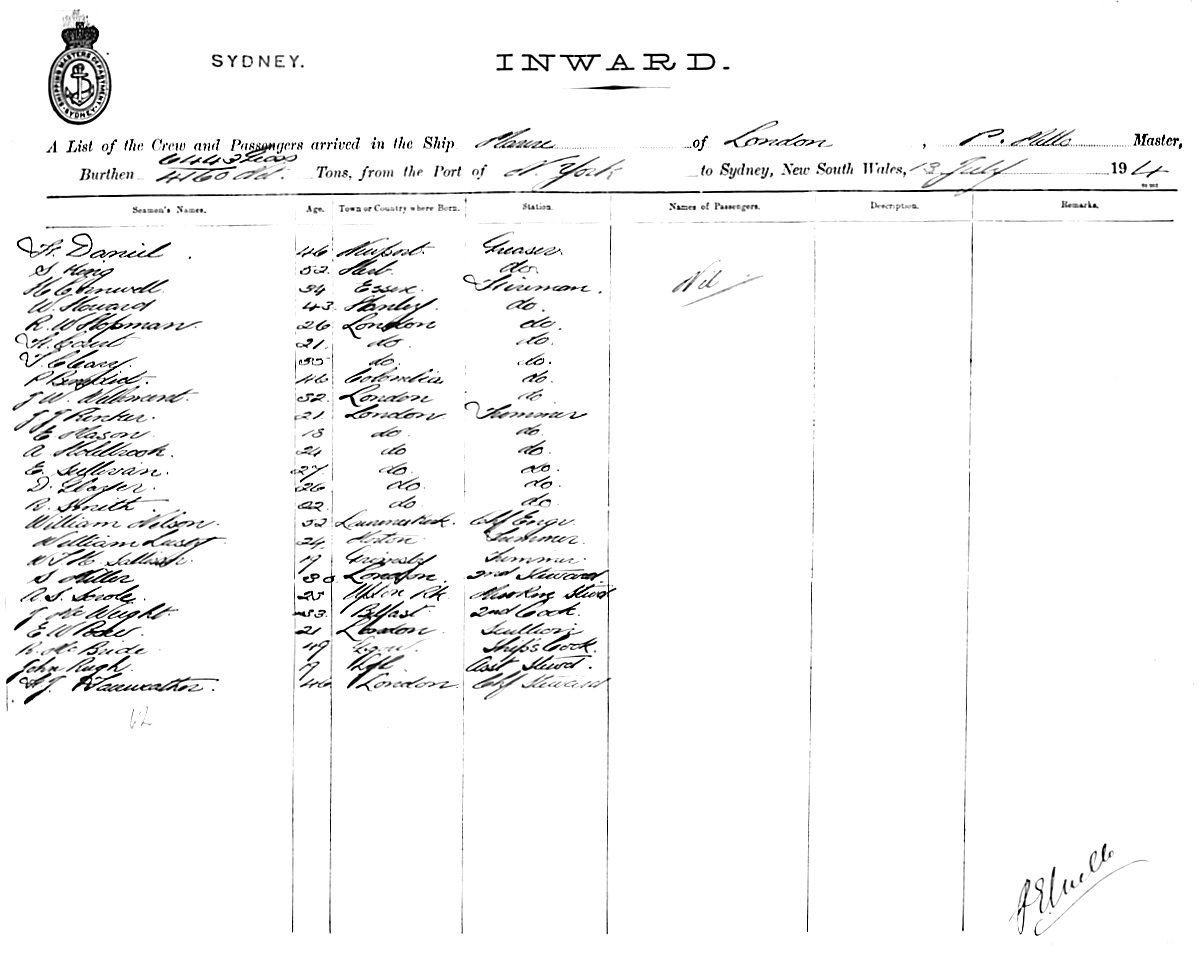 SHIPPING MASTERS DEPARTMENT SYDNEY
SYDNEY.
INWARD.
A List of the Crew and Passengers arrived in the Ship of London, P. Mills Master,
6443 Gross
Burthen 4160 Nt. Tons, from the Port of N. York to Sydney, New South Wales, 13 July 1914
Seamen's Names. Age. Town or Country where Born. Station. Names of Passengers. Description. Remarks.
Fr. Daniel 46 Newport Greaser
S. King 52 do. Nil
Essex Fireman.
W. Howard 43 Stanley do.
R. W. Hopman. 26 London do.
21 do. do.
T. Cleary. do. do.
P. Benedict. 46 Colombia do.
J. W. 52 London do
J J 21 London Trimmer
E Mason 18 do do.
A Holebrook. 24 do do.
E. Sullivan. 27 do. do.
D. Glazer. 26 do. do.
R. Smith. 22 do do
William Nelson. 52 Laurencekirk. Chf Engr.
William Lusby 24 Trimmer
W. 19 Grimsby Trimmer
S Miller 30 London 2nd Steward
A. S. 25 Upton Pk. Stwd
J. Mc Weight. 53. Belfast 2nd Cook.
E W 21 London Scullion
R. Mc Bride 49 Ship's Cook.
John Pugh. Asst Stewd.
Fairweather. 46 London Chf Steward
62